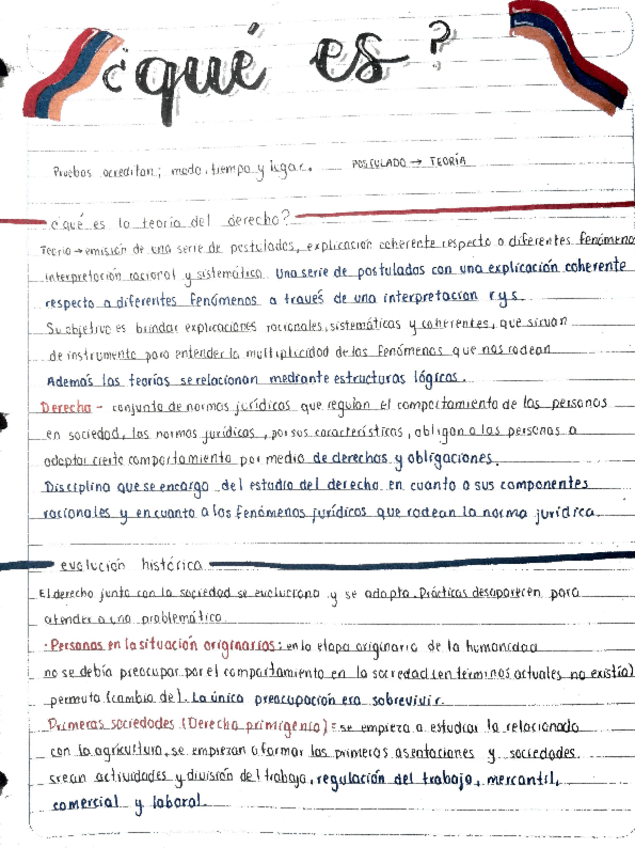 ¿qué es?
Pruebas acreditan; modo, tiempo y lugar. POSTULADO → TEORÍA
¿qué es la teoría del derecho?
Teoría → emisión de una serie de postulados, explicación coherente respecto a diferentes fenómeno
interpretación racional y sistemática. Una serie de postulados con una explicación coherente
respecto a diferentes fenómenos a través de una interpretacion r y s.
Su objetivo es brindar explicaciones racionales, sistemáticas y coherentes, que sirvan
de instrumento para entender la multiplicidad de los fenómenos que nos rodean
Además las teorías se relacionan mediante estructuras lógicas.
Derecho - conjunto de normas jurídicas que regulan el comportamiento de las personas
en sociedad, las normas jurídicas, por sus características, obligan a las personas a
adoptar cierto comportamiento por medio de derechos y obligaciones.
Disciplina que se encarga del estudio del derecho en cuanto a sus componentes
racionales y en cuanto a los fenómenos jurídicos que rodean la norma jurídica.
evolución histórica
El derecho junto con la sociedad se evoluciona y se adapta. Prácticas desaparecen para
atender a una problemática.
· Personas en la situación originarias: en la etapa originaria de la humanidad
no se debía preocupar por el comportamiento en la sociedad (en términos actuales no existía)
permuta (cambio de). La única preocupación era sobrevivir.
Primeras sociedades (Derecho primigenio): se empieza a estudiar lo relacionado
con la agricultura, se empiezan a formar las primeros asentaciones y sociedades.
crean actividades y división del trabajo, regulación del trabajo, mercantil,
comercial y laboral.